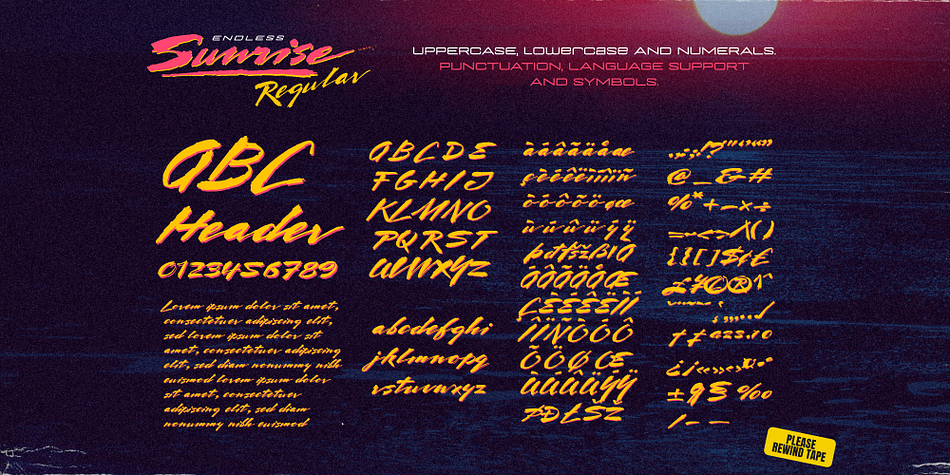 ENDLESS
Sunrise
Regular
UPPERCASE, LOWERCASE AND NUMERALS.
PUNCTUATION, LANGUAGE SUPPORT
AND SYMBOLS.
ABC
Header
0123456789
Lorem ipsum dolor sit amet,
consectetuer adipiscing elit,
sed lorem ipsum dolor sit
amet, consectetuer adipiscing
elit, sed diam nonummy nibh
euismod lorem ipsum dolor
sit amet, consectetuer
adipiscing elit, sed diam
nonummy nibh euismod
ABCDE
FGHIJ
KLMNO
PQRST
UVWXYZ
abcdefghi
jklmnopq
rstuvwxyz
àáâãäåæ
çèéêëìíîïñ
òóôõöøœ
ùúûüýÿ
ÀÁÂÃÄÅÆ
ÇÈÉÊËÌÍ
ÎÏÑÒÓÔ
ÕÖØŒ
ÙÚÛÜÝŸ
ÞÐŁŠŽ
@_&#
%*+−×÷
{[[]$¢£
†‡
±
PLEASE
REWIND TAPE